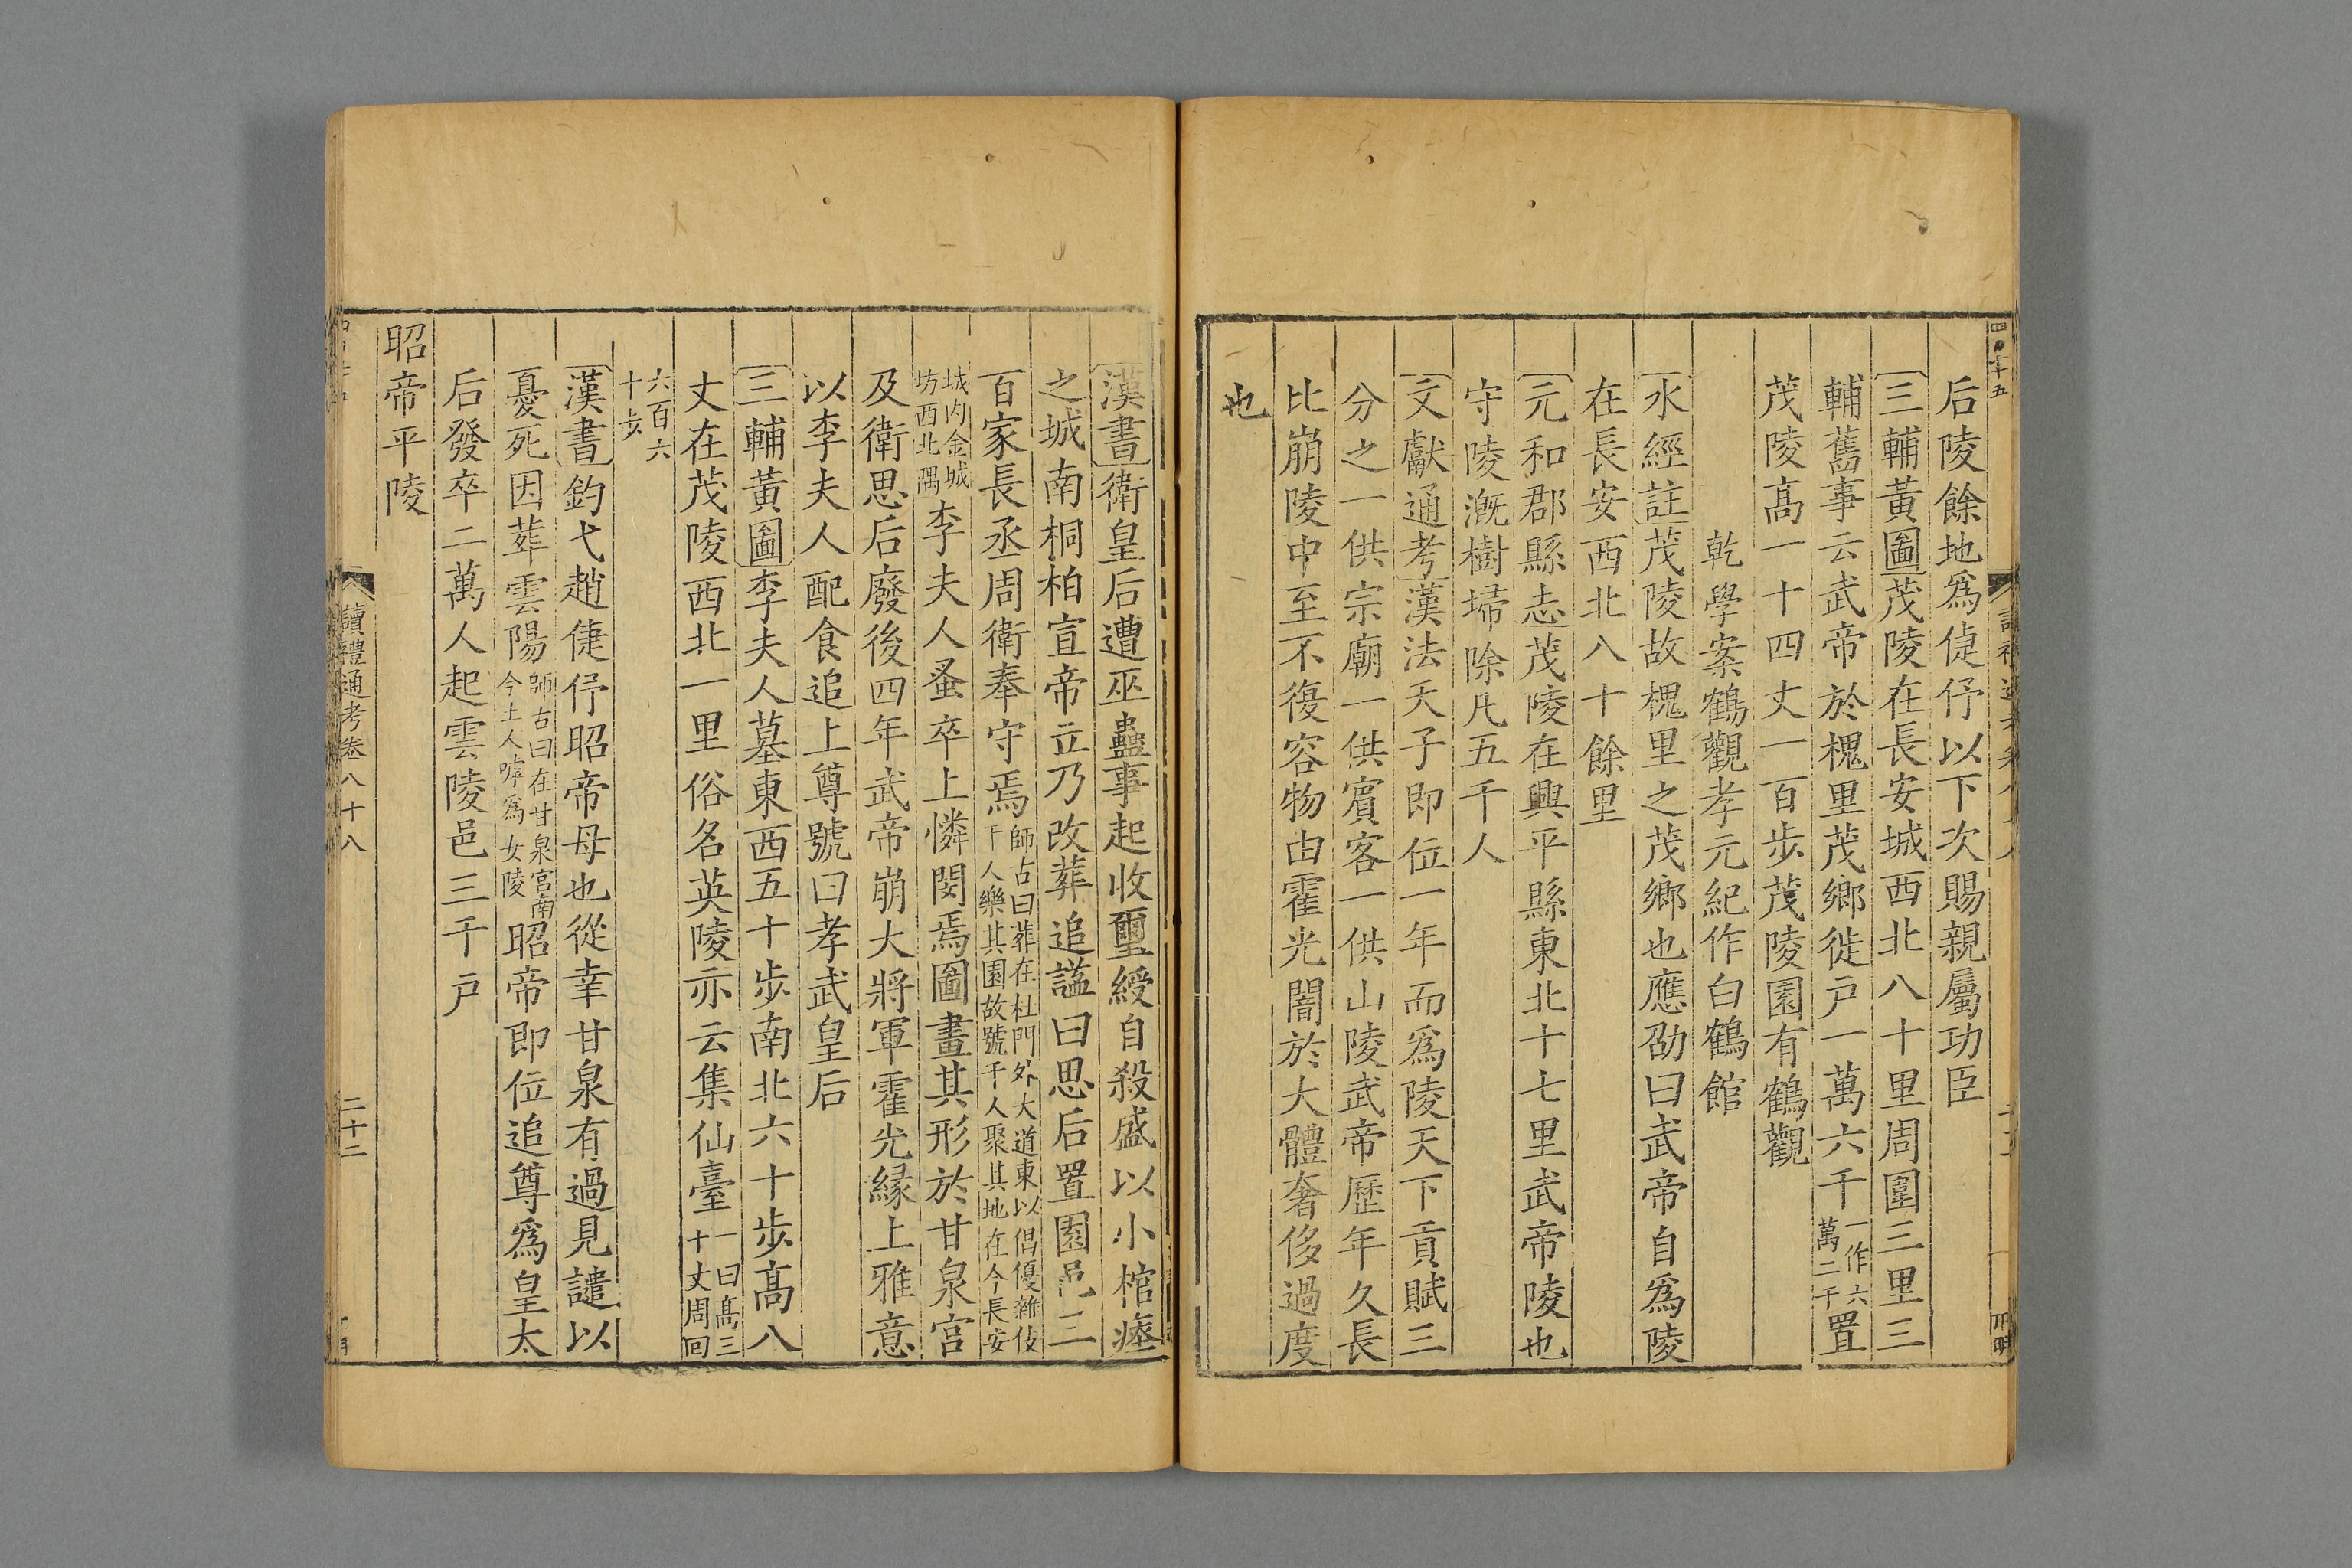 后陵餘地爲倢伃以下次賜親屬功臣
三輔黃圖茂陵在長安城西北八十里周圍三里三
輔舊事云武帝於槐里茂鄉徙戸一萬六千一作六萬二千置
茂陵髙一十四丈一百步茂陵園有鶴觀
乾學案鶴觀孝元紀作白鶴館
水經註茂陵故槐里之茂鄉也應劭曰武帝自爲陵
在長安西北八十餘里
元和郡縣志茂陵在興平縣東北十七里武帝陵也
守陵漑樹埽除凡五千人
文獻通考漢法天子即位一年而爲陵天下貢賦三
分之一供宗廟一供賔客一供山陵武帝歷年久長
比崩陵中至不復容物由霍光闇於大體奢侈過度
也
漢書衛皇后遭巫蠱事起收璽綬自殺盛以小棺瘞
之城南桐柏宣帝立乃改葬追諡曰思后置園邑三
百家長丞周衛奉守焉師古曰葬在杜門外大道東以倡優雜伎千人樂其園故號千人聚其地在今長安
城内金城坊西北隅李夫人蚤卒上憐閔焉圖畫其形於甘泉宮
及衛思后廢後四年武帝崩大將軍霍光縁上雅意
以李夫人配食追上尊號曰孝武皇后
三輔黃圖李夫人墓東西五十步南北六十步髙八
丈在茂陵西北一里俗名英陵亦云集仙臺一曰髙三十丈周回
六百六十步
漢書鈞弋趙倢伃昭帝母也從幸甘泉有過見譴以
憂死因葬雲陽師古曰在甘泉宮南今土人嘑爲女陵昭帝即位追尊爲皇太
后發卒二萬人起雲陵邑三千戸
昭帝平陵
讀禮通考卷八十八
二十二